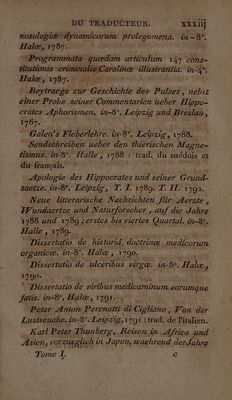 DU TRADUCTEUR. xxxiij
nosologiæ dynamicorum prolegomena. in-8°.
Halæ, 1787.
Programmata quædam articulum 147 cons-
titutionis criminalis Carolinæ illustrantia. in-4°.
Halæ, 1787.
Beytraege zur Geschichte des Pulses, nebst
einer Probe seiner Commentarien ueber Hippo-
crates Aphorismen. in-8°. Leipzig und Breslau,
1787.
Galen's Fieberlehre. in-8°. Leipzig, 1788.
Sendschreiben ueber den thierischen Magne-
tismus. in-8°. Halle, 1788 : trad. du suédois et
du français.
Apologie des Hippocrates und seiner Grund-
saetze. in-8°. Leipzig, T. I. 1789. T. II. 1792.
Neue litterarische Nachrichten für Aerzte,
Wundaerzte und Naturforscher, auf die Jahre
1788 und 1789; erstes bis viertes Quartal. in-8°.
Halle, 1789.
Dissertatio de historiâ doctrinæ medicorum
organicæ. in-8°. Halæ, 1790.
Dissertatio de ulceribus virgæ. in-8°. Halæ,
1790.
Dissertatio de viribus medicaminum eorumque
fatis. in-8°. Halæ, 1791.
Peter Anton Perenotti di Cigliano, Von der
Lustseuche. in-8°. Leipzig, 1791 : trad. de l'italien.
Karl Peter Thunberg, Reisen in Africa und
Asien, vorzueglich in Japon, waehrend der Jahre
Tome I. c